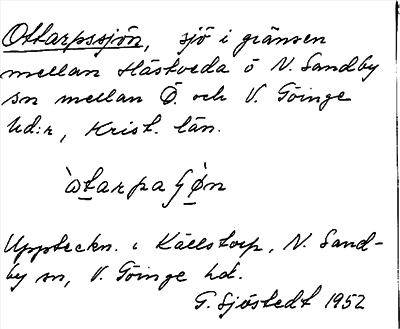 Ottarpssjön, sjö i gränsen
mellan Hästveda o N. Sandby
sn mellan Ö. och V. Göinge
hd:r, Krist. län.
Uppteckn. i Källstorp, N. Sand-
by sn, V. Göinge hd.
G. Sjöstedt 1952